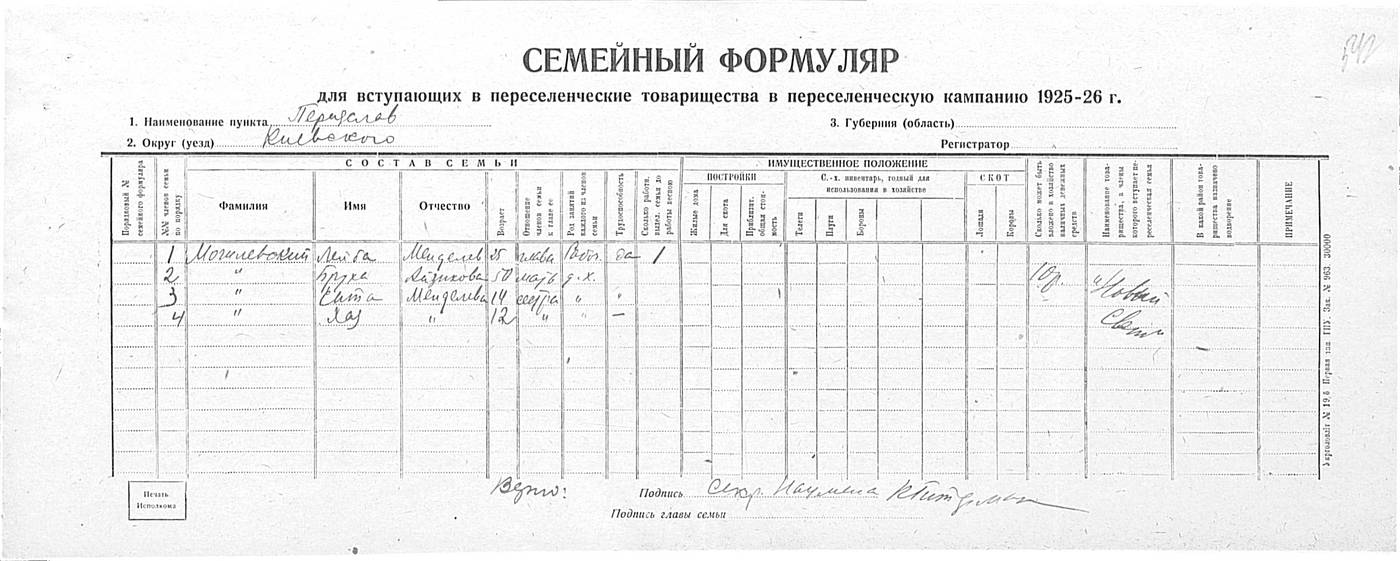 542
СЕМЕЙНЫЙ ФОРМУЛЯР
для вступающих в переселенческие товарищества в переселенческую кампанию 1925-26 г.
1. Наименование пункта Переяслав 3. Губерния (область)
2. Округ (уезд) Киевского Регистратор
Порядковый № семейного формуляра
№№ членов семьи по порядку
СОСТАВ СЕМЬИ
Фамилия Имя Отчество
Возраст
Отношение членов семьи к главе ее
Род занятий каждого из членов семьи
Трудоспособность
Сколько работн. выдел. семья до работы весною
ИМУЩЕСТВЕННОЕ ПОЛОЖЕНИЕ
ПОСТРОЙКИ
Жилые дома
Для скота
Приблизит. общая стоимость
С.-х. инвентарь, годный для использования в хозяйстве
Телеги
Плуги
Бороны
СКОТ
Лошади
Коровы
Сколько может быть вложено в хозяйство наличных денежных средств
Наименование товарищества, в члены которого вступает переселенческая семья
В какой район товарищества назначено водворение
ПРИМЕЧАНИЕ
1 Могилевский Лейба Менделев 25 глава Рабоч. да 1
2 " Бруха Айзикова 50 мать д.х. 10р. "Новый
3 " Сита Менделева 14 сестра " "
4 " Хая " 12 " " — Свет"
Укрголовліт № 19,6 Перша зап. ГПУ. Зак. № 963 30000
Печать Исполкома
Верно: Подпись секр.
Подпись главы семьи